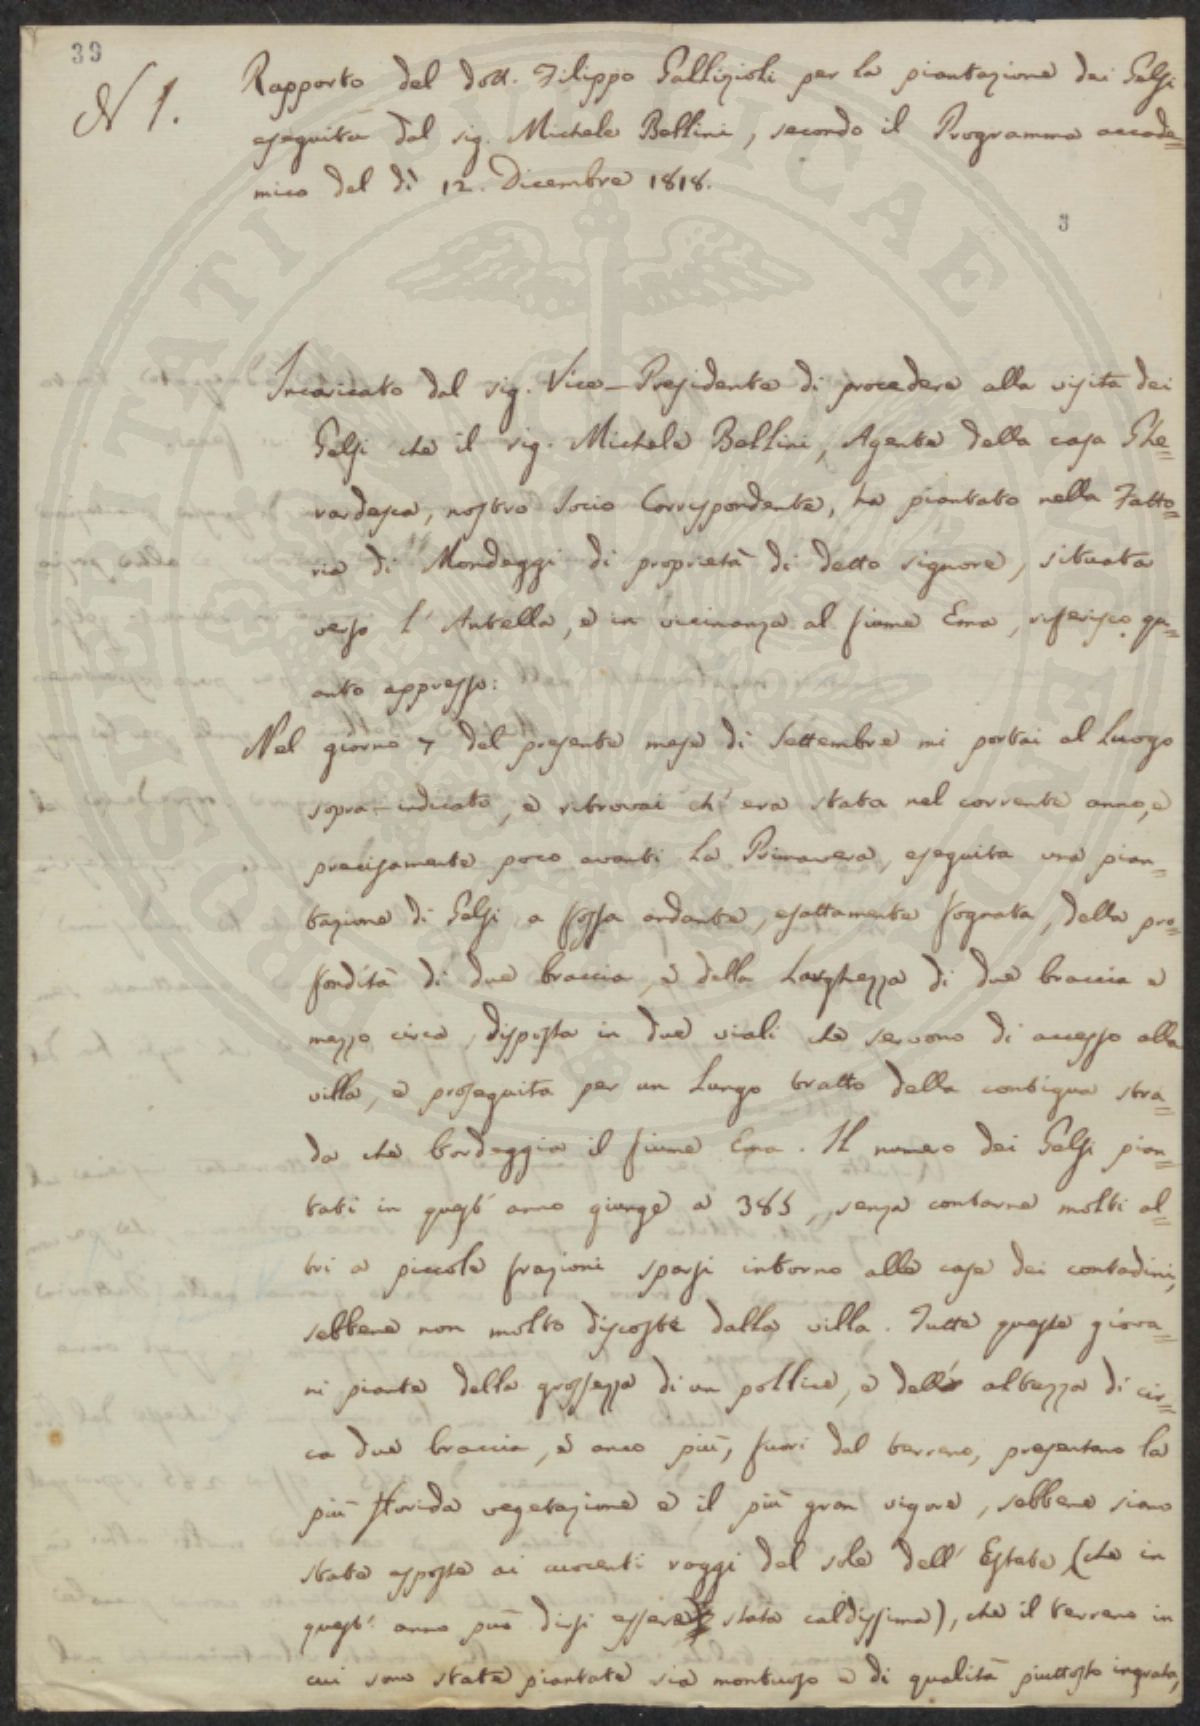 39
N 1.
Rapporto del dott. Filippo Gallizioli per la piantazione dei Gelsi
eseguita dal sig. Michele Bellini, secondo il Programma accade=
mico del dì 12. Dicembre 1818.
3
Incaricato dal sig. Vice-Presidente di procedere alla visita dei
Gelsi che il sig. Michele Bellini, Agente della casa Ghe=
rardesca, nostro Socio Corrispondente, ha piantato nella Fatto=
ria di Mondeggi di proprietà di detto signore, situata
verso l'Antella, e in vicinanza al fiume Ema, riferisco qu=
anto appresso:
Nel giorno 7 del presente mese di Settembre mi portai al luogo
sopra-indicato, e ritrovai ch'era stata nel corrente anno, e
precisamente poco avanti la Primavera, eseguita una pian=
tazione di Gelsi a fossa andante, esattamente fognata, della pro=
fondità di due braccia, e della larghezza di due braccia e
mezzo circa, disposta in due viali che servono di accesso alla
villa, e proseguita per un lungo tratto della contigua stra=
da che bordeggia il fiume Ema. Il numero dei Gelsi pian=
tati in quest'anno giunge a 385, senza contarne molti al=
tri a piccole frazioni sparsi intorno alle case dei contadini,
sebbene non molto discoste dalla villa. Tutte queste giova=
ni piante della grossezza di un pollice, e dell'altezza di cir=
ca due braccia, e anco più, fuori dal terreno, presentano la
più florida vegetazione e il più gran vigore, sebbene siano
state esposte ai cuocenti raggi del sole dell'Estate (che in
quest'anno può dirsi essere stata caldissima), che il terreno in
cui sono state piantate sia montuoso e di qualità piuttosto ingrata,